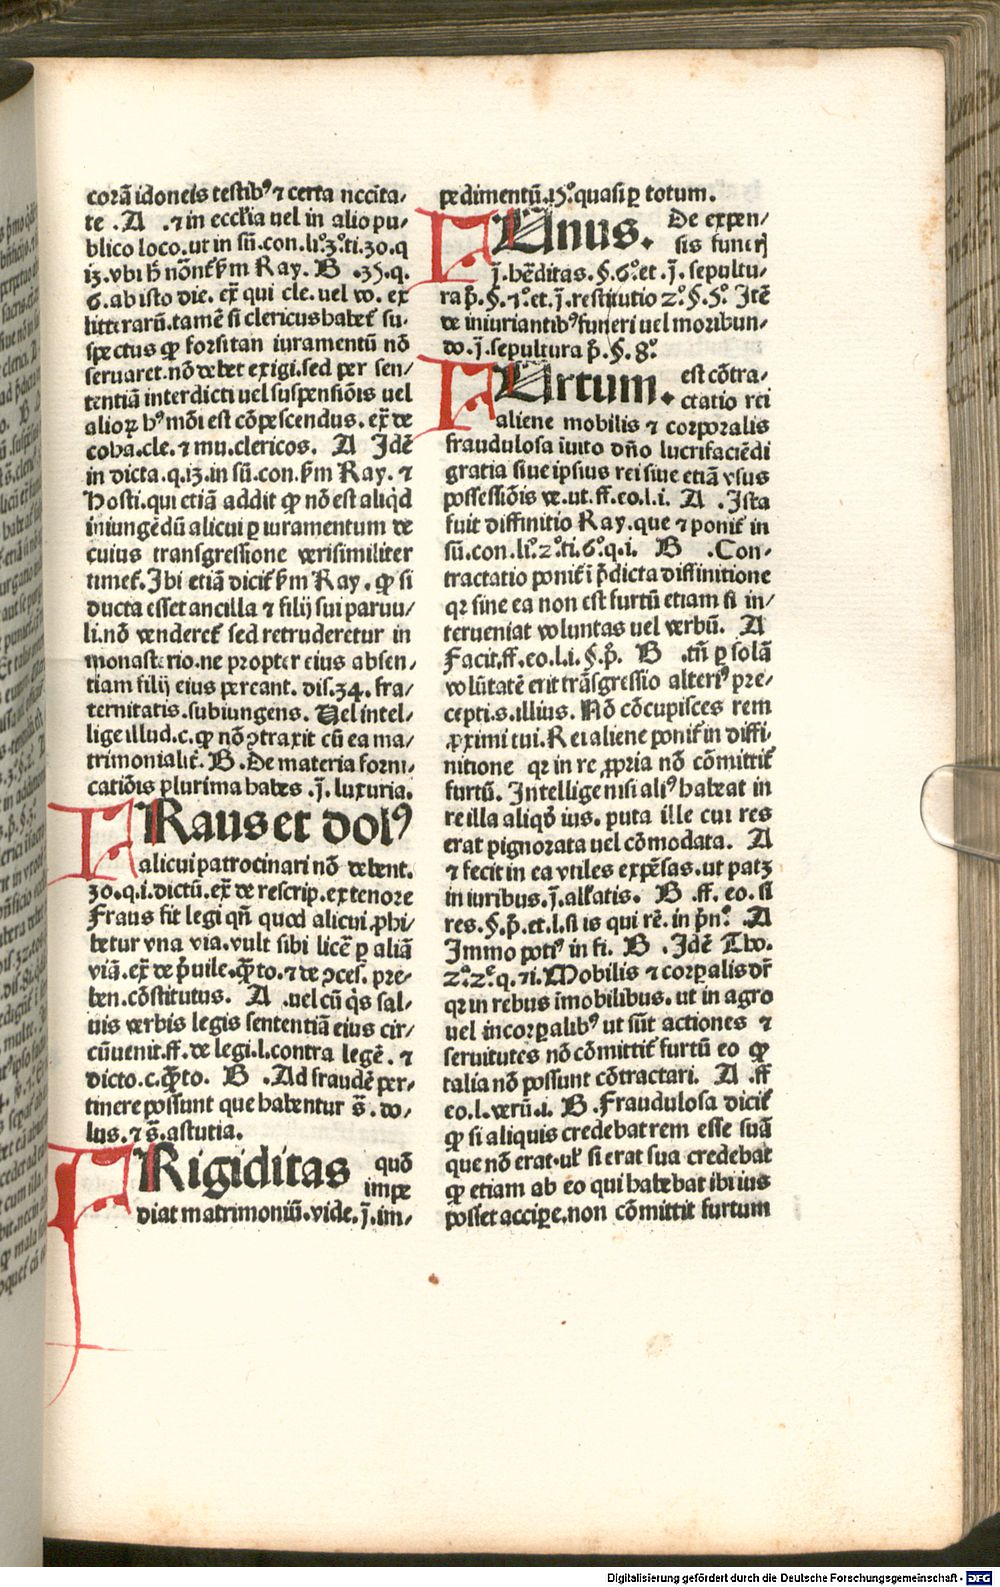 corã idoneis testibꝰ ⁊ certa nccita-
te .A .⁊ in ecclia uel in alio pu-
blico loco. ut in sũ.con.li.3.ti.30.q
13. vbi h nõnt' sm Ray. B .35.q.
6. ab isto die. ex qui cle. uel vo. ex
litterarũ. tamẽ si clericus habet' su-
spectus ꝙ forsitan iuramentũ nõ
seruaret. nõ debet exigi. sed per sen-
tentiã interdicti uel suspensiõis uel
alioꝝ hꝰ mõi est cõpescendus. ex de
coha. cle. ⁊ mu. clericos. A Idẽ
in dicta.q.13. in sũ.con. sm Ray. ⁊
Hosti. qui etiã addit ꝙ nõ est aliqd
iniungẽdũ alicui ꝑ iuramentum de
cuius transgressione verisimiliter
timet'. Ibi etiã dicit' sm Ray. ꝙ si
ducta esset ancilla ⁊ filij sui paruu-
li. nõ venderet' sed retruderetur in
monasterio. ne propter eius absen-
tiam filij eius pereant. dis.34. fra-
ternitatis. subiungens. Uel intel-
lige illud.c. ꝙ nõ ꝯtraxit cũ ea ma-
trimonialit'. B. De materia forni-
catiõis plurima habes .j. luxuria.
FRaus et dolꝰ
alicui patrocinari nõ debent.
30.q.i. dictũ. ex de rescrip. ex tenore
Fraus fit legi qñ quod alicui ꝓhi-
betur vna via. vult sibi licẽ ꝑ aliã
viã. ex de p̃uile. q̃to. ⁊ de ꝯces. pre-
ben. cõstitutus. A .uel cũ qs sal-
uis verbis legis sententiã eius cir-
cũuenit. ff. de legi. l. contra legẽ. ⁊
dicto.c. q̃to. B .Ad fraudẽ per-
tinere possunt que habentur s̃. do-
lus. ⁊ s̃. astutia.
FRigiditas quõ
impe
diat matrimoniũ. vide .j. im-
pedimentũ.15.° quasi ꝑ totum.
FUnus. De expen-
sis funerj
j. hẽditas. §.6.° et .j. sepultu-
ra p̃. §.7.° et .j. restitutio 2.° §.5.° Itẽ
de iniuriantibꝰ funeri uel moribun-
do .j. sepultura p̃. §.8.°
FUrtum. est cõtra-
ctatio rei
aliene mobilis ⁊ corporalis
fraudulosa iuito dño lucrifaciẽdi
gratia siue ipsius rei siue etiã vsus
possessiõis ve. ut. ff. eo. l. i. A .Ista
fuit diffinitio Ray. que ⁊ ponit' in
sũ. con. li.° 2.° ti.6.° q.i. B .Con-
tractatio ponit' i p̃dicta diffinitione
qꝛ sine ea non est furtũ etiam si in-
terueniat voluntas uel verbũ. A
Facit. ff. eo. l. i. §. p̃. B .tñ ꝑ solã
volũtatẽ erit trãsgressio alteriꝰ pre-
cepti. s. illius. Nõ cõcupisces rem
ꝓximi tui. Rei aliene ponit' in diffi-
nitione qꝛ in re ꝓpria nõ cõmittit'
furtũ. Intellige nisi aliꝰ habeat in
re illa aliqõ ius. puta ille cui res
erat pignorata uel cõmodata. A
⁊ fecit in ea vtiles expẽsas. ut patꝫ
in iuribus .j. all'atis. B .ff. eo. si
res. §. p̃. et. l. si is qui rẽ. in pñ.° A
Immo potiꝰ in fi. B .Idẽ Tho.
2.ª 2.e q. 7i. Mobilis ⁊ corꝑalis dr̃
qꝛ in rebus imobilibus. ut in agro
uel incorꝑalibꝰ ut sũt actiones ⁊
seruitutes nõ cõmittit' furtũ eo ꝙ
talia nõ possunt cõtractari. A .ff
eo. l. verũ. i. B .Fraudulosa dicit'
ꝙ si aliquis credebat rem esse suã
que nõ erat. ul' si erat sua credebat
ꝙ etiam ab eo qui habebat ibi ius
posset acciꝑe. non cõmittit furtum
Digitalisierung gefördert durch die Deutsche Forschungsgemeinschaft - DFG